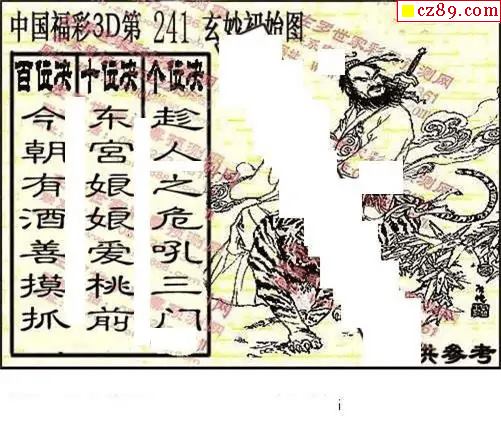 cz89.com
中国福彩3D第 241 玄妙初始图
百位决 十位决 个位决
今朝有酒善摸抓
东宫娘娘爱桃前
趁人之危吼三门
供参考
i